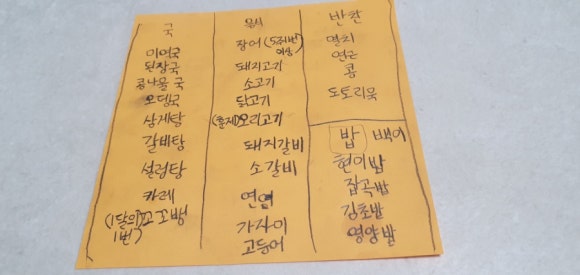 국
미역국
된장국
콩나물국
오뎅국
삼계탕
갈비탕
설렁탕
카레
(1달의 고로빵
1번)
음식
장어 (5주1번
이상)
돼지고기
소고기
닭고기
(훈제)오리고기
돼지갈비
소갈비
연어
가자미
고등어
반찬
멸치
연근
콩
도토리묵
밥 백미
현미밥
잡곡밥
김초밥
영양밥